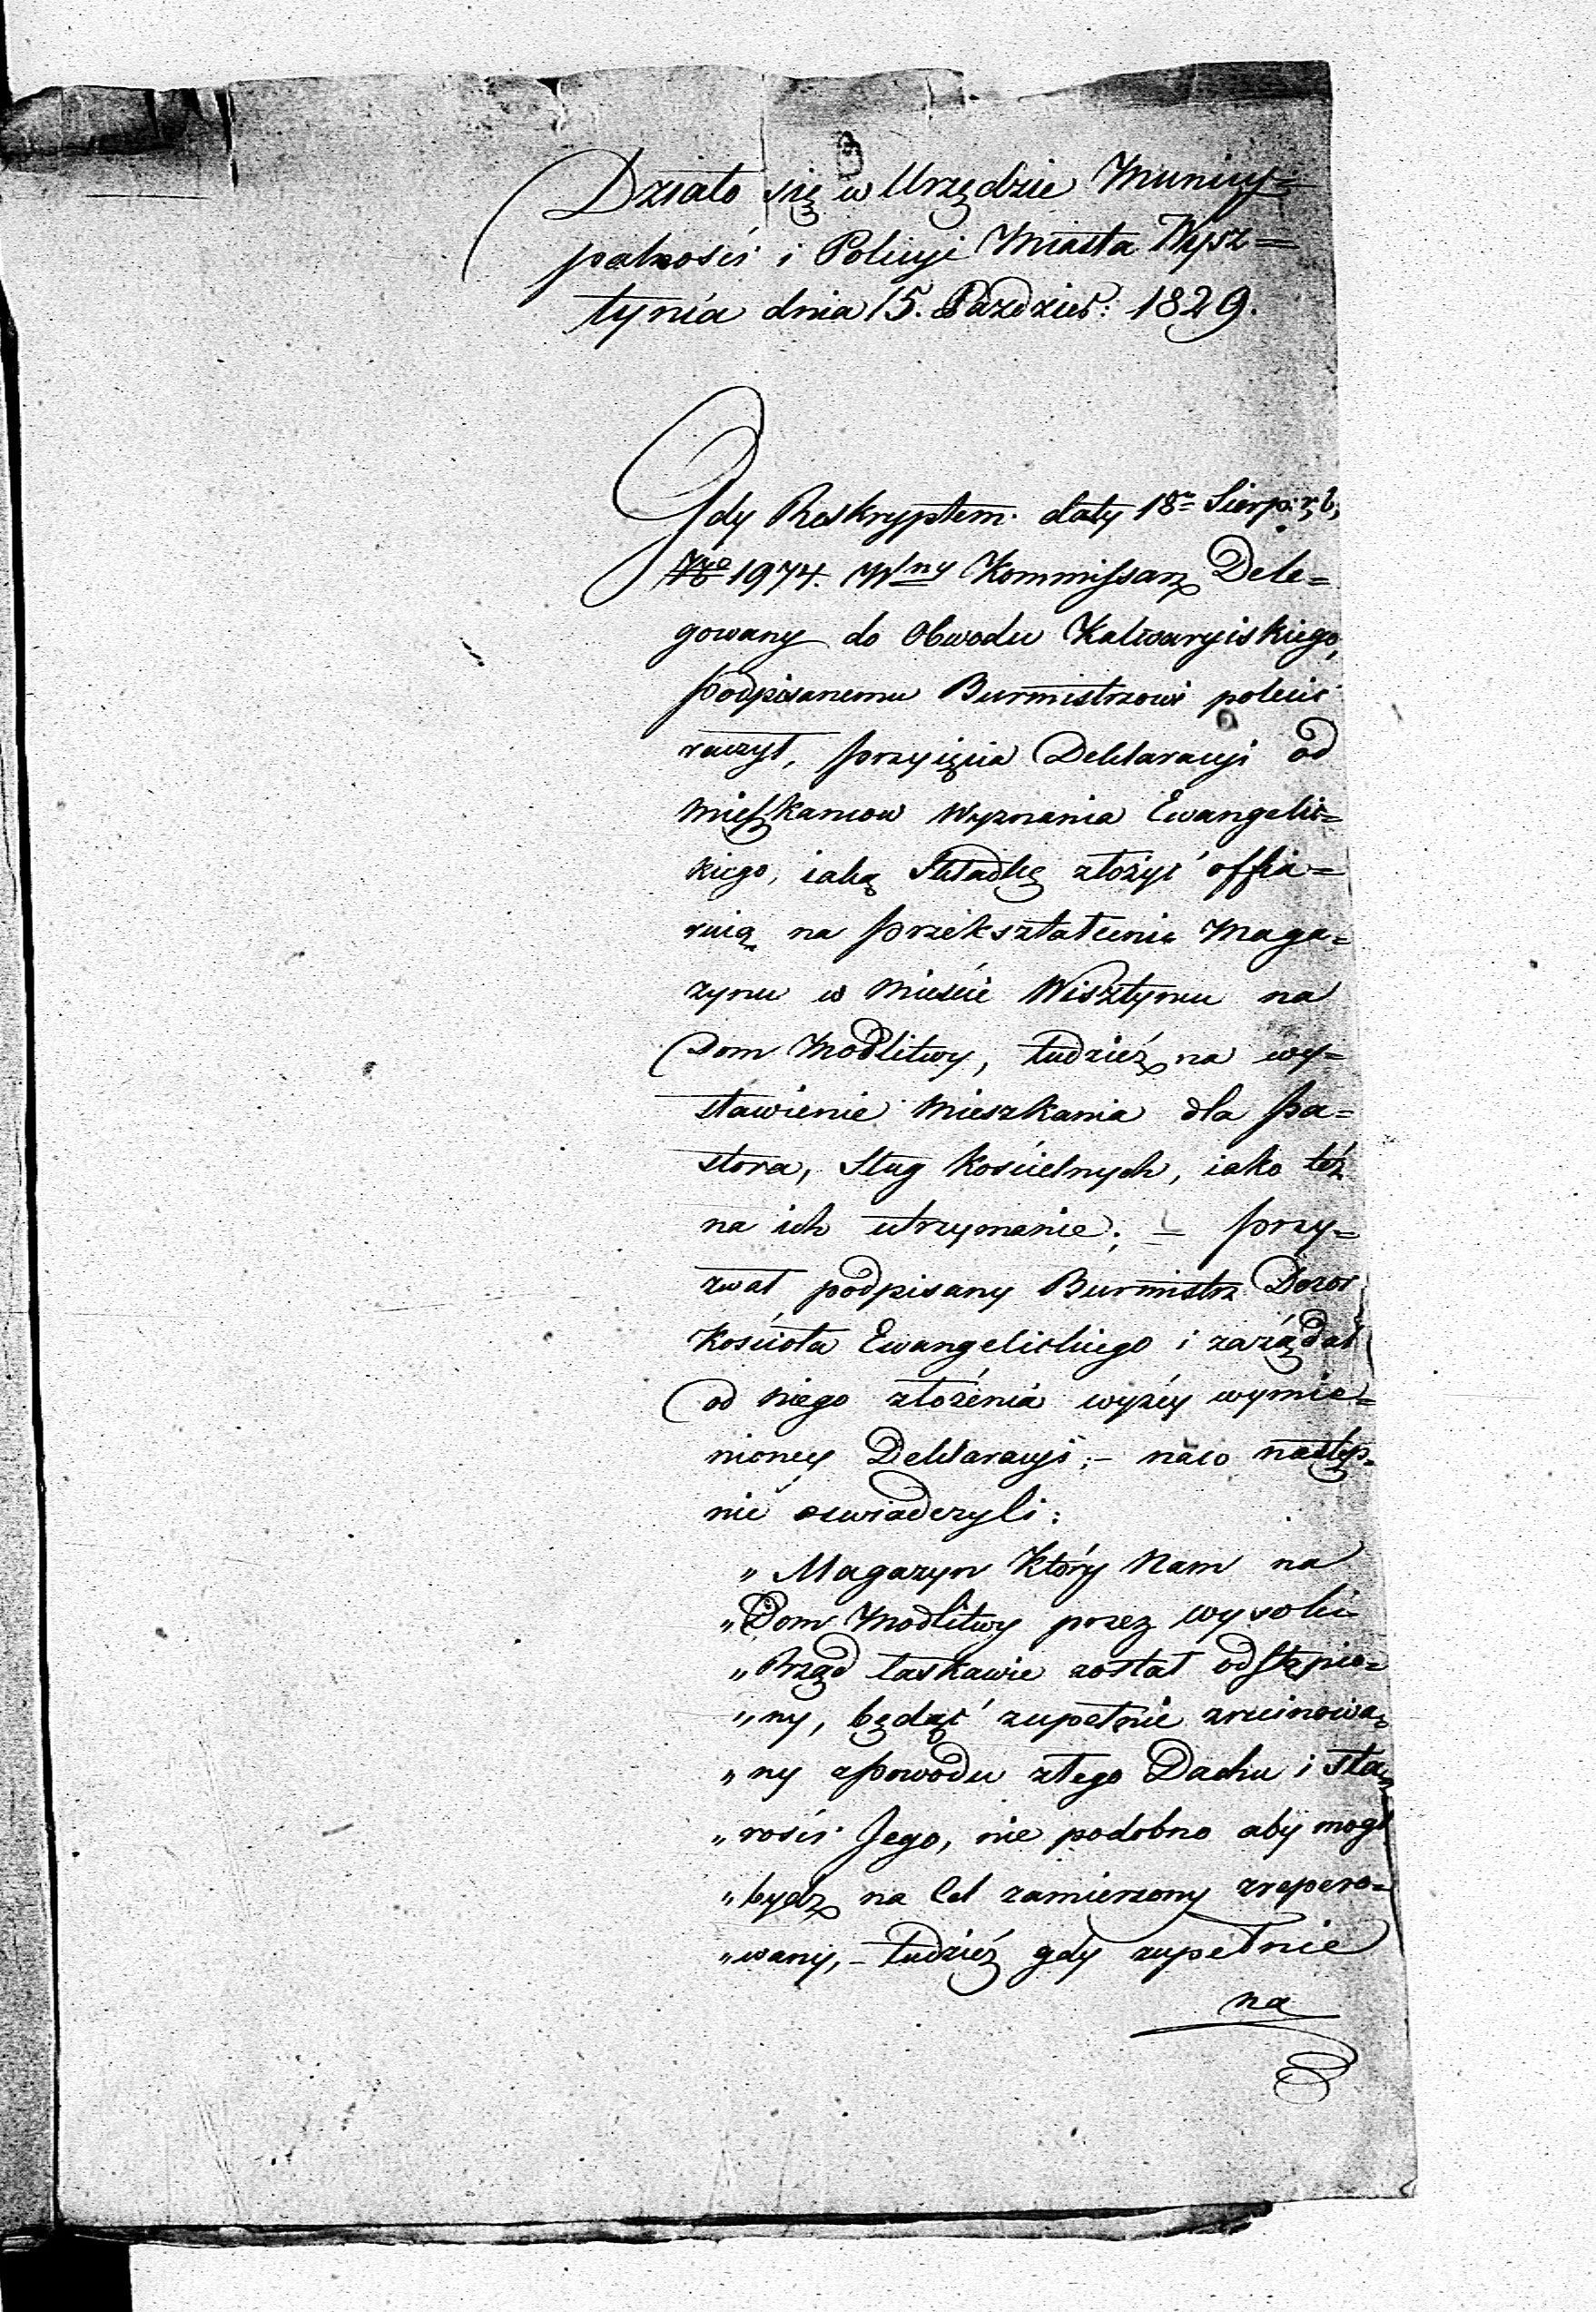 Działo się w Urzędzie Municy=
palności i Policyi Miasta Wysz=
tynia dnia 15. Paździer: 1829.
Gdy Reskryptem daty 18° Sierp: r, b,
Nro 1974. Wny Kommissarz Dele=
gowany do Obwodu Kalwaryiskiego,
podpisanemu Burmistrzowi polecić
raczył, przyięcia Deklaracyi od
mieszkancow Wyznania Ewangelic=
kiego, iaką Składkę złożyć offia=
ruią na przekształcenie Maga=
zynu w mieście Wisztyncu na
Dom Modlitwy, tudzież na wy=
stawienie mieszkania dla pa=
stora, Sług kościelnych, iako też
na ich utrzymanie; — przy=
zwał podpisany Burmistrz Dozor
Kościoła Ewangelickiego i zarządał
od niego złożenia wyżey wymie=
nioney Deklaracyi; – naco następ=
nie oswiadczyli:
„ Magazyn Który Nam na
„ Dom Modlitwy przez wysoki
„ Rząd łaskawie został odstąpio=
„ ny, będąć zupełnie zruinowa=
„ ny zpowodu złego Dachu i sta=
„ rości Jego, nie podobno aby mogł
„ bydz na Cel zamierzony zrepero=
„ wany, – tudzież gdy zupełnie
na